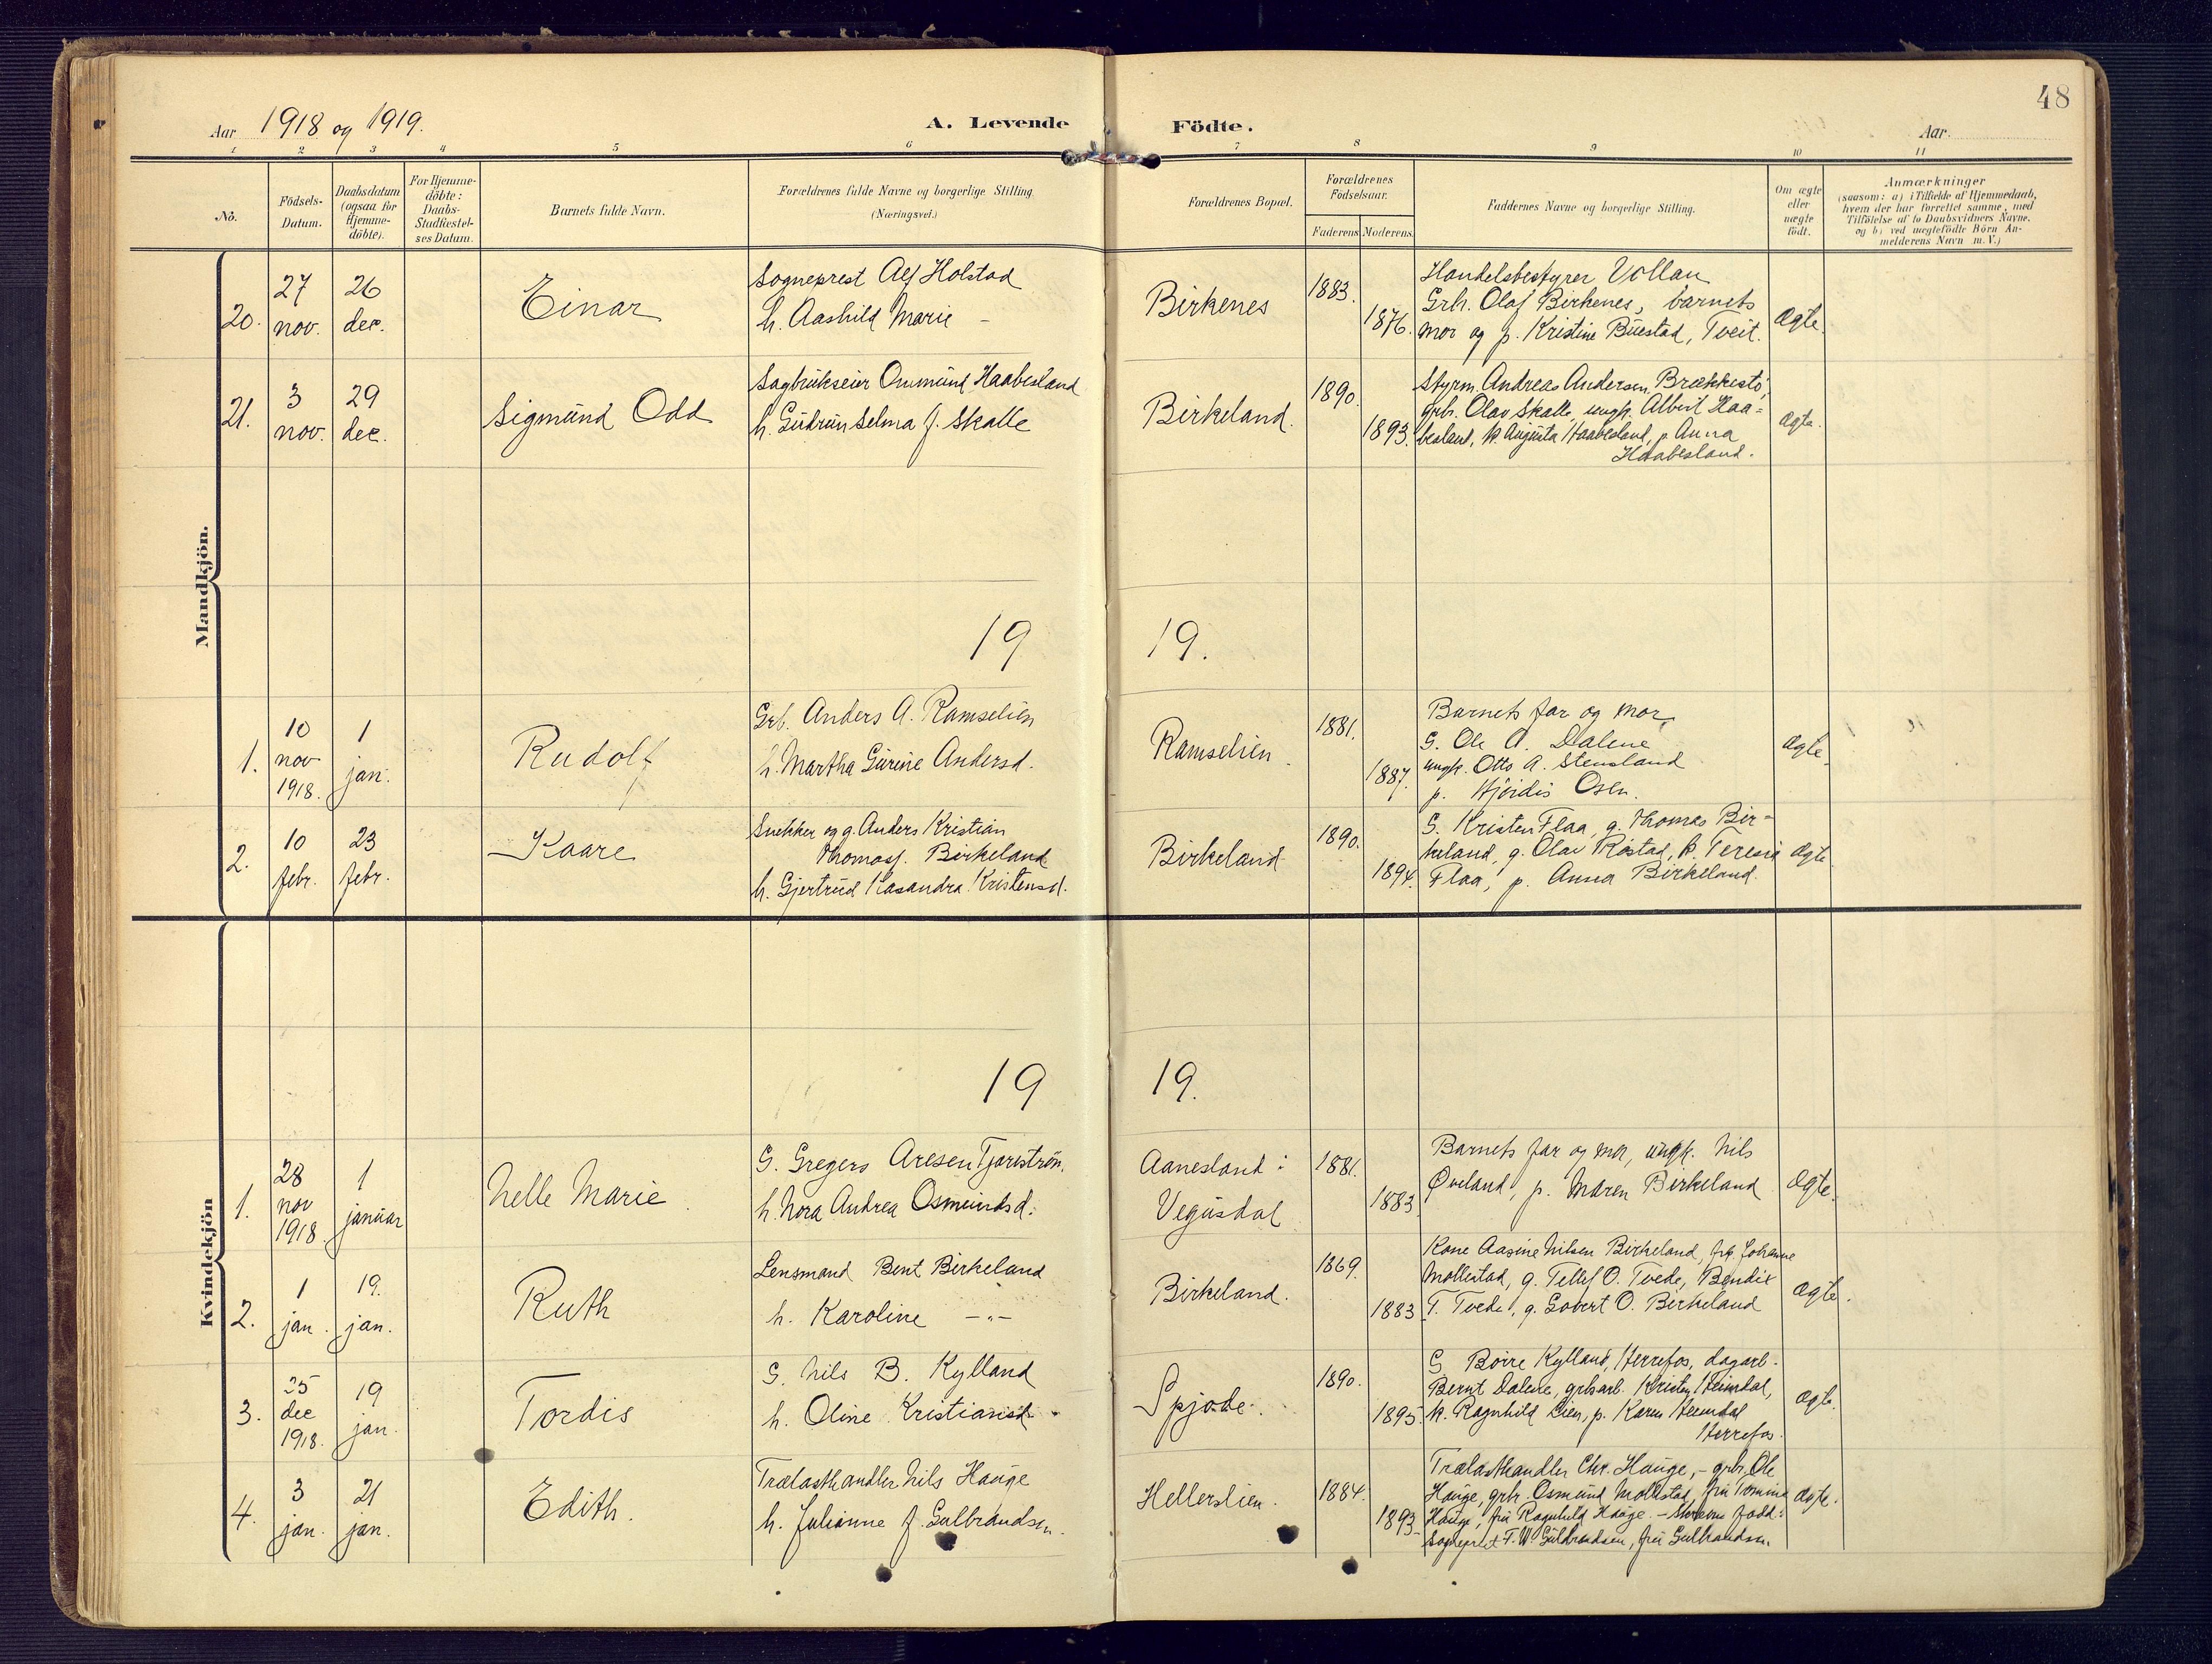 48
Aar 1918 og 1919.
A. Levende Födte.
Aar
1 2 3 4 5 6 7 8 9 10 11
No.
Födsels-
Datum.
Daabsdatum
(ogsaa for
Hjemme-
döbte).
For Hjemme-
döbte:
Daabs-
Stadfæstel-
ses Datum.
Barnets fulde Navn.
Forældrenes fulde Navne og borgerlige Stilling.
(Næringsvei.)
Forældrenes Bopæl.
Forældrenes
Födselsaar.
Faderens Moderens
Faddernes Navne og borgerlige Stilling.
Om ægte
eller
uægte
födt.
Anmærkninger
(saasom: a) i Tilfælde af Hjemmedaab,
hvem der har forrettet samme, med
Tilföielse af to Daabsvidners Navne.
og b) ved uægtefödte Börn An-
melderens Navn m. V.)
Mandkjön.
20.
27
nov.
26
dec.
Einar
Sogneprest Alf Holstad
h. Aashild Marie -
Birkenes
1883.
1876.
Handelsbestyrer Vollan
Grh. Olaf Birkenes, barnets
mor og p. Kristine Buestad, Tveit.
Ægte.
21.
3
nov.
29
dec.
Sigmund Odd
Sagbrukseier Ommund Haabesland
h. Gudrun Selma f. Skalle
Birkeland.
1890.
1893.
Styrm. Andreas Andersen, Brækkestö,
grb. Olav Skalle, ungk. Albert Haa=
besland, k. Augusta Haabesland, p. Anna
Haabesland.
Ægte.
19 19.
1.
10
nov
1918.
1
jan.
Rudolf
Grb. Anders A. Ramselien
h. Martha Gurine Andersd.
Ramselien.
1881.
1887.
Barnets far og mor,
G. Ole A. Dalene
ungk. Otto A. Stensland
p. Hjördis Osen.
Ægte.
2.
10
febr.
23
febr.
Kaare
Snekker og g. Anders Kristian
Thomasf. Birkeland
h. Gjertrud Kasandra Kristensd.
Birkeland
1890.
1894.
G. Kristen Flaa, g. Thomas Bir-
keland, g. Olav Röstad, k. Teresia
Flaa, p. Anna Birkeland.
Ægte.
Kvindekjön
19 19.
1.
28
nov
1918.
1
januar
Nelle Marie
G. Gregers Aresen Tjorestrøn.
h. Nora Andrea Osmundsd.
Aanesland i
Vegusdal
1881.
1883
Barnets far og mor, ungk. Nils
Øveland, p. Maren Birkeland
Ægte.
2.
1
jan.
19.
jan.
Ruth
Lensmand Bent Birkeland
h. Karoline -"-
Birkeland.
1869.
1883
Kone Aasine Nilsen Birkeland, frk. Johanne
Mollestad, g. Tellef O. Tvede, Bendix
T. Tvede, g. Govert O. Birkeland
Ægte.
3.
25
dec
1918.
19
jan.
Tordis
G. Nils B. Kylland
h. Oline Kristiansd.
Spjode.
1890.
1895
G. Börre Kylland, Herrefos, dagarb.
Bernt Dalene, grbarb. Kristen Heimdal,
k. Ragnhild Lien, p. Karen Heimdal
Herrefos.
Ægte.
4.
3
jan.
21
jan.
Edith.
Trælasthandler Nils Hauge
h. Julianne f. Gulbrandsen.
Hellerslien.
1884.
1893.
Trælasthandler Chr. Hauge, - grbr. Ole
Hauge, grbr. Osmund Mollestad, fru Tomine
Hauge, fru Ragnhild Hauge. - fadd:
Sogneprest F. W. Gulbrandsen, fru Gulbrandsen.
Ægte.